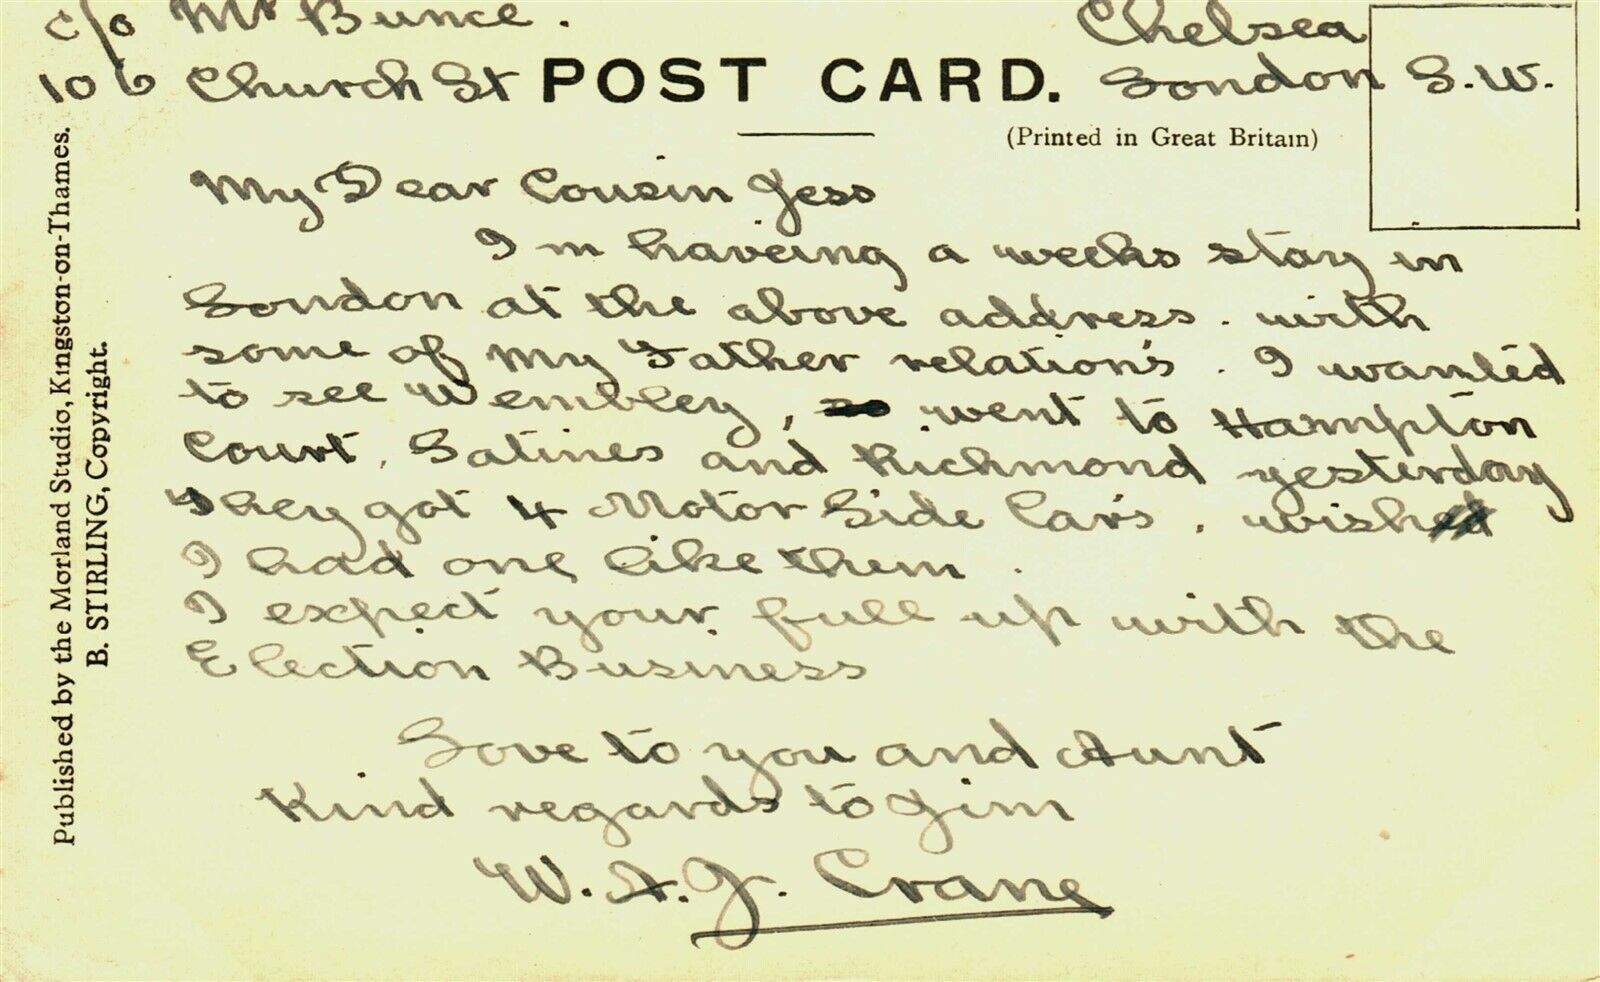 c/o Mr Bunce.
106 Church St
Chelsea
London S.W.
POST CARD.
(Printed in Great Britain)
Published by the Morland Studio, Kingston-on-Thames.
B. STIRLING, Copyright.
My Dear Cousin Jess
I m haveing a weeks stay in
London at the above address. with
some of my Father relation's. I wanted
to see Wembley, so went to Hampton
Court, Satines and Richmond yesterday
They got 4 Motor Side Car's, wished
I had one like them.
I expect your full up with the
Election Business
Love to you and Aunt
Kind regards to Jim
W. A. J. Crane